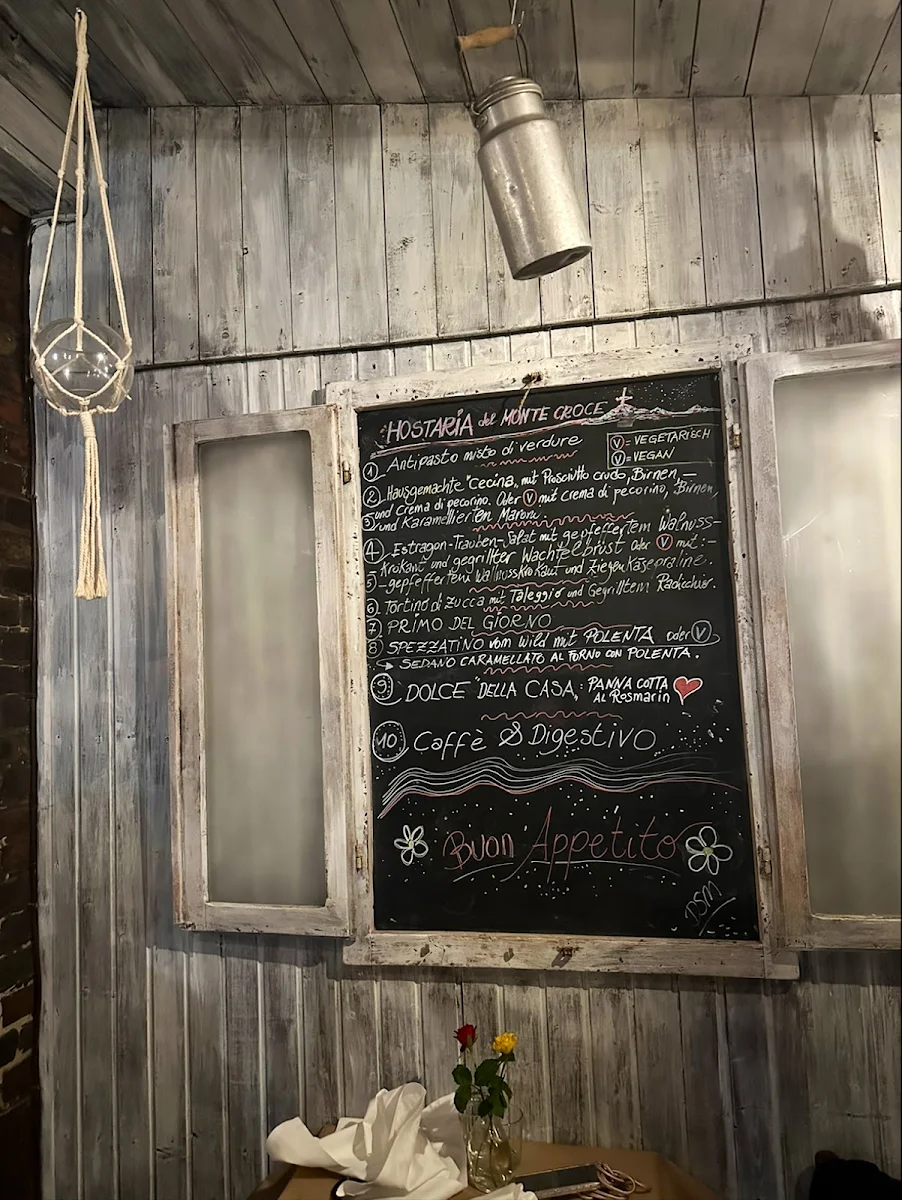 HOSTARÍA del MONTE CROCE
Ⓥ = VEGETARISCH
Ⓥ = VEGAN
1 Antipasto misto di verdure
2 Hausgemachte "Cecina, mit Prosciutto crudo, Birnen,—
und Crema di pecorino. Oder Ⓥ mit crema di pecorino, Birnen,
3 und Karamellierten Maroni.
4 Estragon-Trauben-Salat mit gepfeffertem Walnuss-
Krokant und gegrillter Wachtelbrust oder Ⓥ mit:–
5 -gepfeffertem Walnusskrokant und Ziegenkäsepraline.
6 Tortino di zucca mit Taleggio und Gegrilltem Radicchio.
7 PRIMO DEL GIORNO
8 SPEZZATINO vom Wild mit POLENTA oder Ⓥ
→ SEDANO CARAMELLATO AL FORNO CON POLENTA.
9 DOLCE "DELLA CASA,: PANNA COTTA
AL Rosmarin
10 Caffè & Digestivo
Buon Appetito
DSM